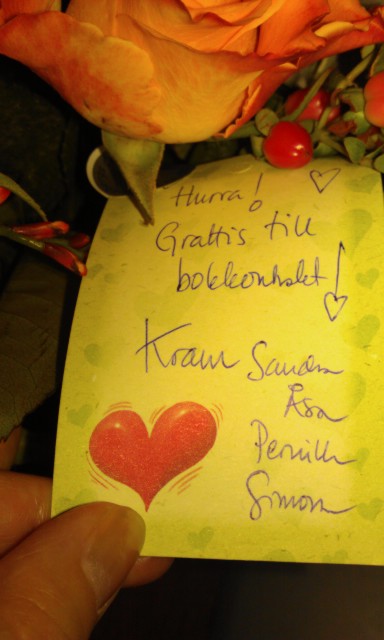 Hurra! ♡
Grattis till
bokkontraktet!
Kram Sandra
Åsa
Pernilla
Simona